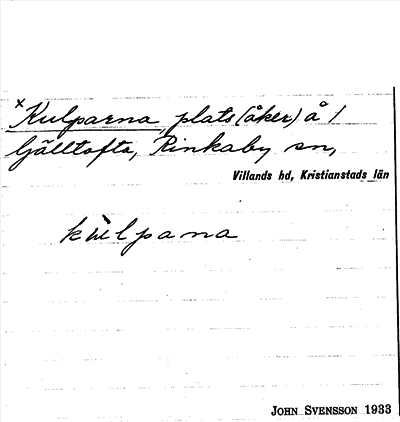 × Kulparna, plats (åker) å 1
Gjälltofta, Rinkaby sn,
Villands hd, Kristianstads län
kùlpana
JOHN SVENSSON 1933